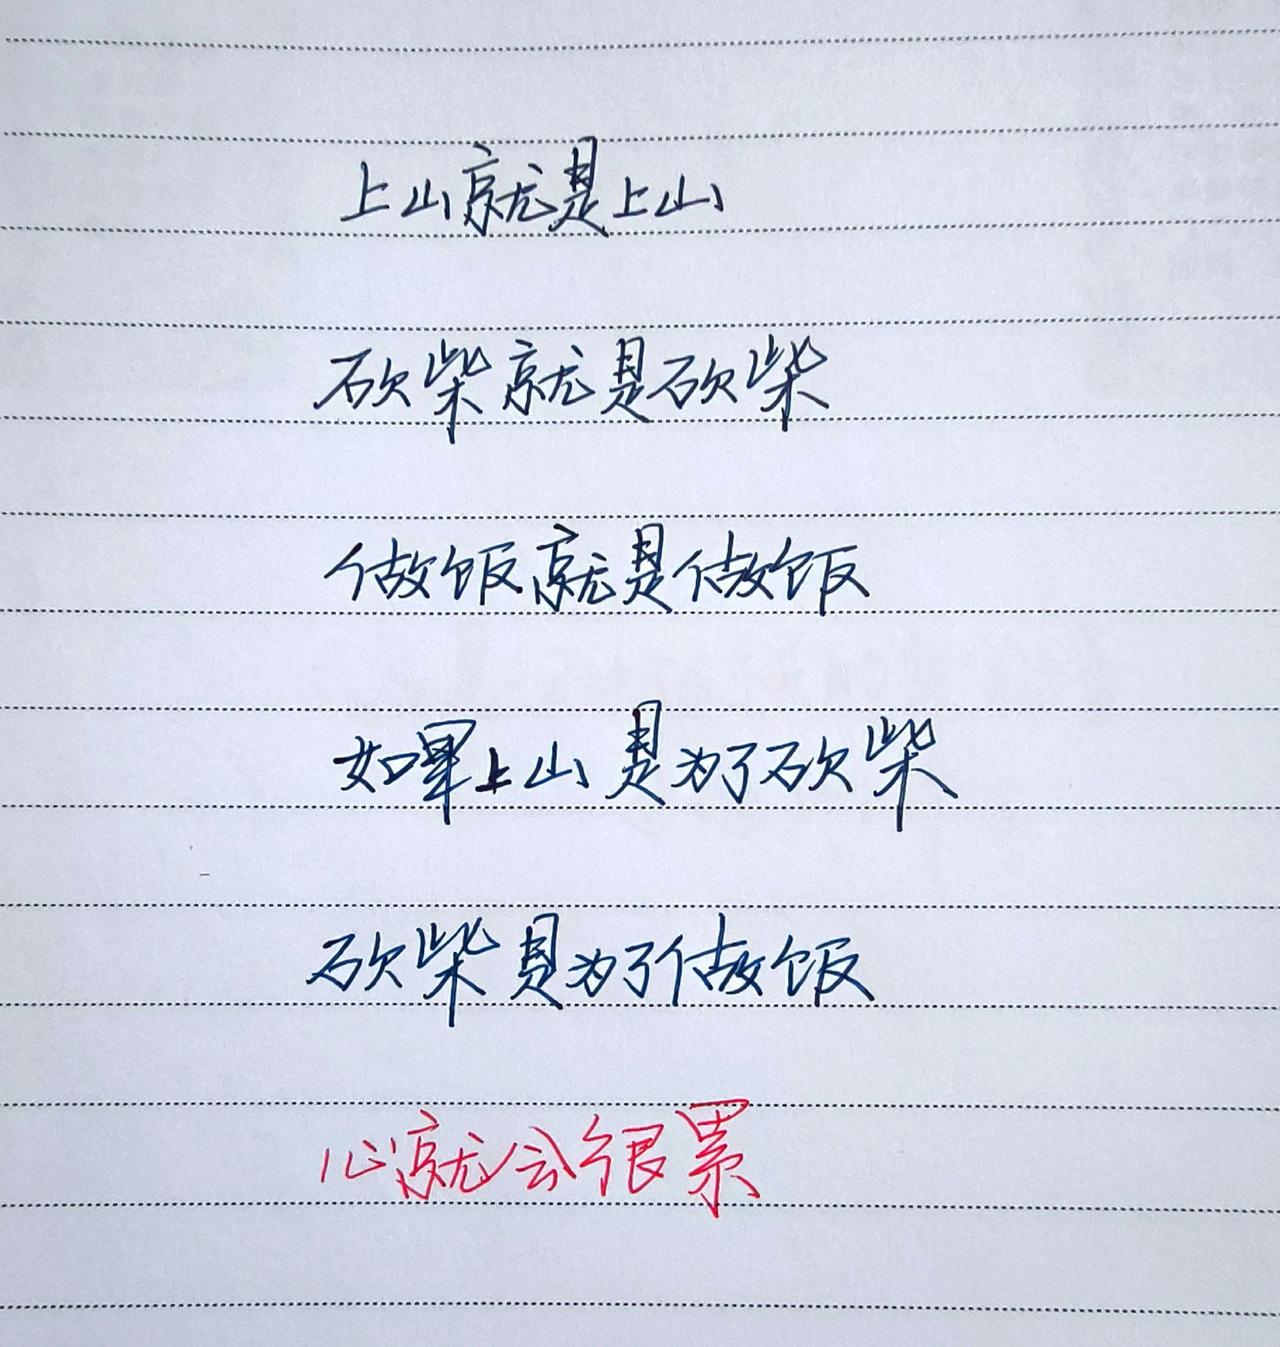 上山就是上山
砍柴就是砍柴
做饭就是做饭
如果上山是为了砍柴
砍柴是为了做饭
心就会很累